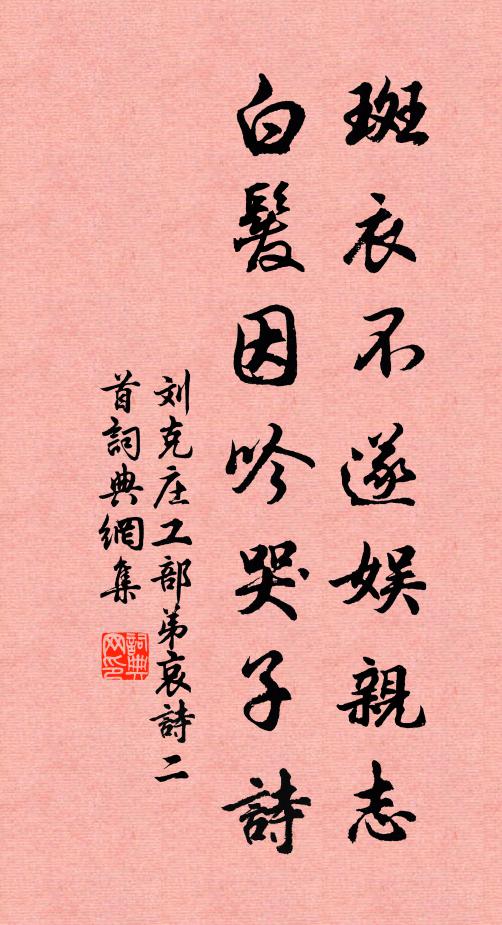 斑衣不遂娱親志
白髮因吟哭子詩
刘克庄工部弟哀詩二
首詞典網集
詞典
网印